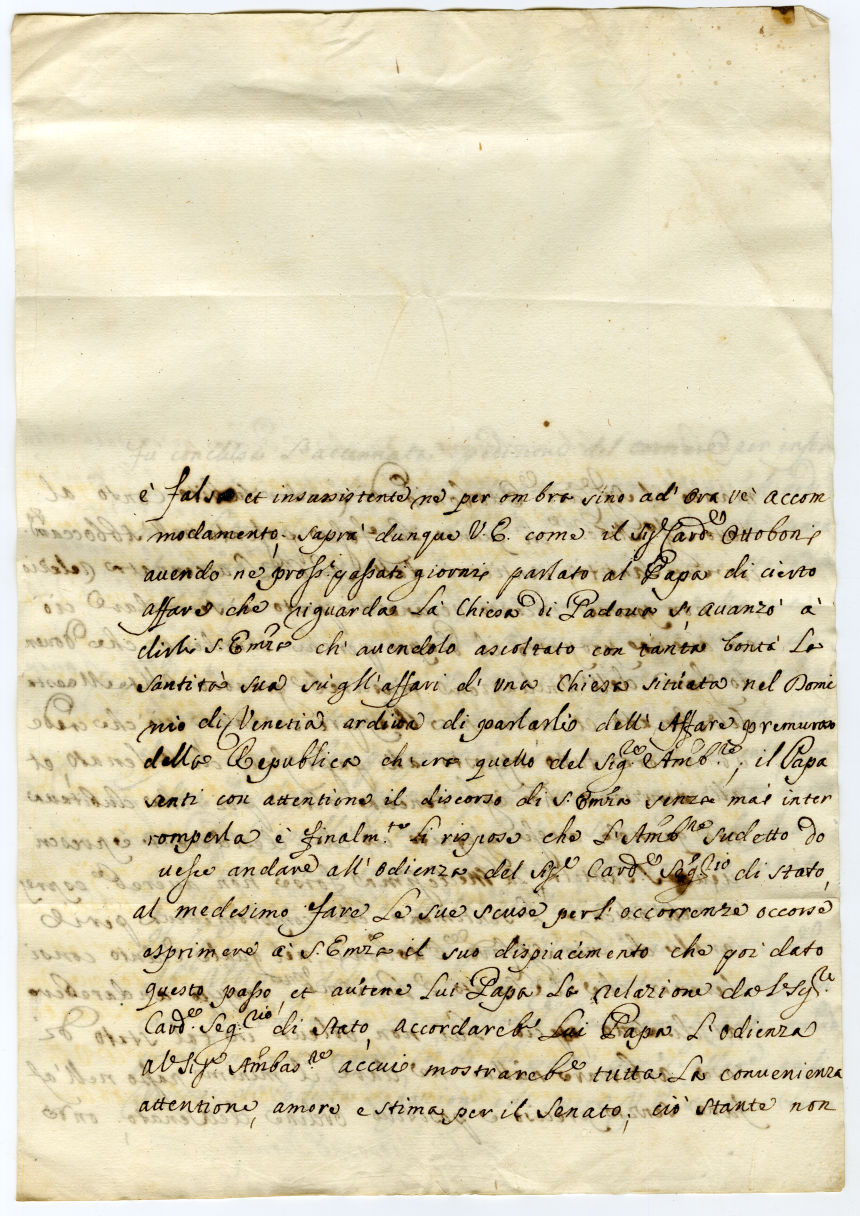 è falso et insussistente ne per ombra sino ad' Ora ve' accom
modamento. saprà dunque V. E. come il Sig.r Card.e Ottoboni
avendo ne prossi. passati giorni parlato al Papa di cierto
affare che riguarda La Chiesa di Padova s' avanzò à
dirli S. Emza ch' avendolo ascoltato con tanta bontà La
Santità sua sugll'affari d' una Chiesa situata nel Domi
nio di Venetia ardiva di parlarlio dell' Affare premuroso
della Republica ch' era quello del Sig.re Amb.re; il Papa
sentì con attentione il discorso di S. Emza senza mai inter
romperla è finalm.te Li rispose che L'Amb.re sudetto do
vesse andare all' Odienza del Sig.e Card.e Seg.rio di Stato,
al medesimo fare Le sue scuse per l' occorrenze occorse
esprimere à S. Emza il suo dispiacimento che poi dato
questo passo, et autene Lui Papa La relazione da L Sig.re
Card.e Seg.rio di Stato, accordareb.e Lui Papa L'Odienza
al Sig.e Ambas.re accui mostrareb.e tutta La convenienza
attentione, amore e stima per il Senato; ciò stante non